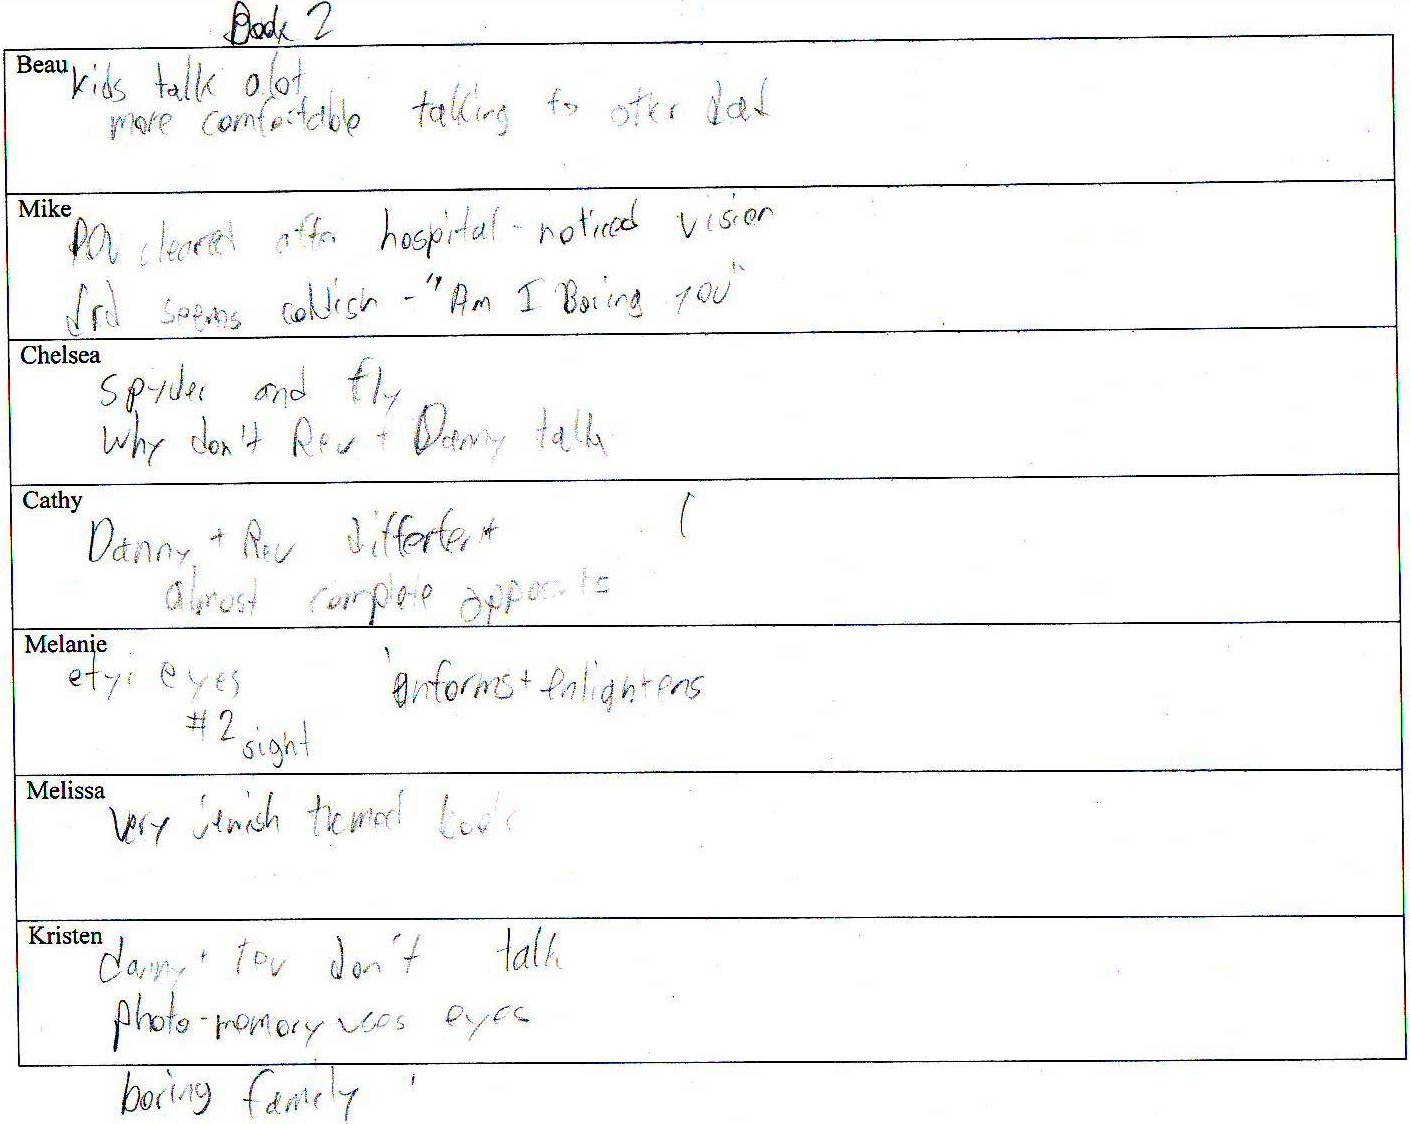 Book 2
Beau
kids talk alot
more comfortable talking to oter dad
Mike
POV cleared after hospital - noticed vision
drd seems coldish - "Am I Boring you"
Chelsea
spyder and fly
why don't Rev + Danny talk
Cathy
Danny + Rev differfent
almost complete
Melanie
eyes informs + enlightens
#2 sight
Melissa
very jewish themed book
Kristen
danny + don't talk
photo-memory uses eyes
boring family